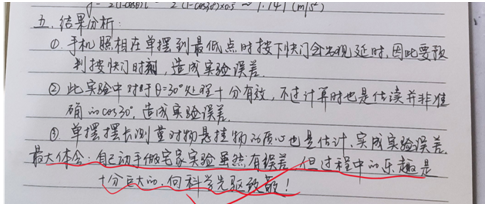 五. 结果分析.
① 手机照相在单摆到最低点时按下快门会出现延时,因此要预
判按快门时期,造成实验误差.
② 此实验中对于θ=30°处理十分有效,不过计算时也是估读并非准
确的cos30°,造成实验误差.
③ 单摆摆长测量时物悬挂物的质心也是估计,实成实验误差.
最大体会:自己动手做宏家实验虽然有误差,但过程中的乐趣是
十分巨大的,向科学先驱致敬!